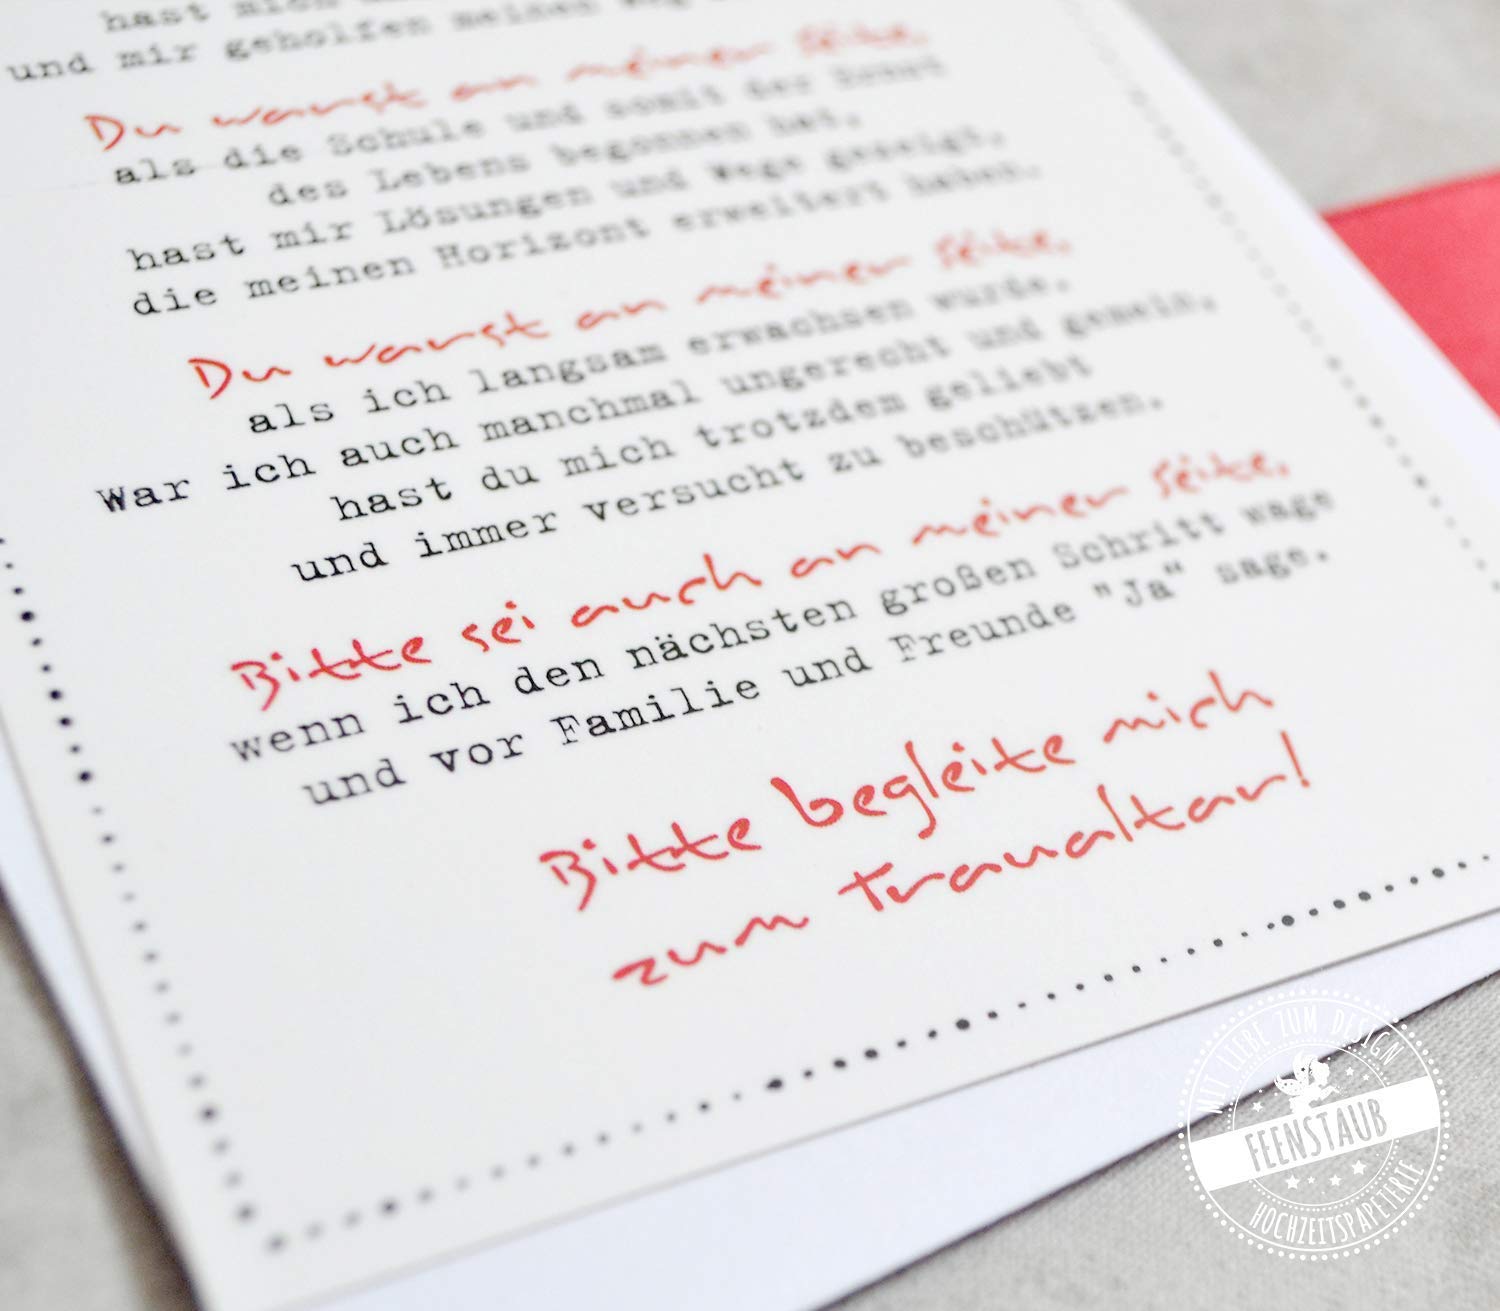 hast mich
und mir geholfen meinen Weg
Du warst an meiner Seite,
als die Schule und somit der Ernst
des Lebens begonnen hat,
hast mir Lösungen und Wege gezeigt,
die meinen Horizont erweitert haben.
Du warst an meiner Seite,
als ich langsam erwachsen wurde.
War ich auch manchmal ungerecht und gemein,
hast du mich trotzdem geliebt
und immer versucht zu beschützen.
Bitte sei auch an meiner Seite,
wenn ich den nächsten großen Schritt wage
und vor Familie und Freunde "Ja" sage.
Bitte begleite mich
zum Traualtar!
MIT LIEBE ZUM DESIGN
FEENSTAUB
HOCHZEITSPAPETERIE